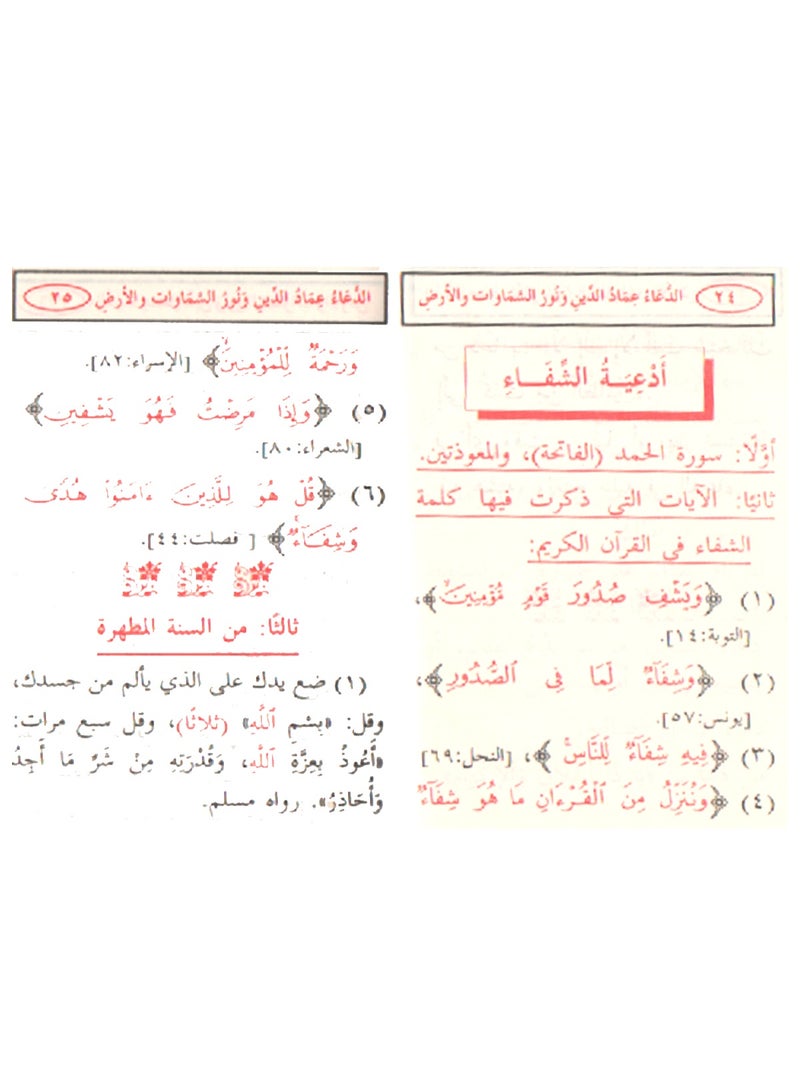 ٢٤ الدُّعَاءُ عِمَادُ الدِّينِ وَنُورُ السَّمَاوَات والأَرضِ
أَدْعِيَةُ الشِّفَــاءِ
أوَّلًا: سورة الحمد (الفاتحة)، والمعوذتين.
ثانيًا: الآيات التي ذكرت فيها كلمة
الشفاء في القرآن الكريم:
(١) ﴿وَيَشْفِ صُدُورَ قَوْمٍ مُّؤْمِنِينَ﴾،
[التوبة:١٤].
(٢) ﴿وَشِفَآءٌ لِّمَا فِى ٱلصُّدُورِ﴾،
[يونس:٥٧].
(٣) ﴿فِيهِ شِفَآءٌ لِّلنَّاسِ﴾، [النحل:٦٩]
(٤) ﴿وَنُنَزِّلُ مِنَ ٱلْقُرْءَانِ مَا هُوَ شِفَآءٌ
٢٥ الدُّعَاءُ عِمَادُ الدِّينِ وَنُورُ السَّمَاوَات والأَرضِ
وَرَحْمَةٌ لِّلْمُؤْمِنِينَ﴾ [الإسراء:٨٢].
(٥) ﴿وَإِذَا مَرِضْتُ فَهُوَ يَشْفِينِ﴾
[الشعراء:٨٠].
(٦) ﴿قُلْ هُوَ لِلَّذِينَ ءَامَنُوا۟ هُدًى
وَشِفَآءٌ﴾ [ فصلت:٤٤].
ثالثًا: من السنة المطهرة
(١) ضع يدك على الذي يألم من جسدك،
وقل: «بِسْمِ ٱللَّهِ» (ثلاثًا)، وقل سبع مرات:
«أَعُوذُ بِعِزَّةِ ٱللَّهِ، وَقُدْرَتِهِ مِنْ شَرِّ مَا أَجِدُ
وَأُحَاذِرُ». رواه مسلم.